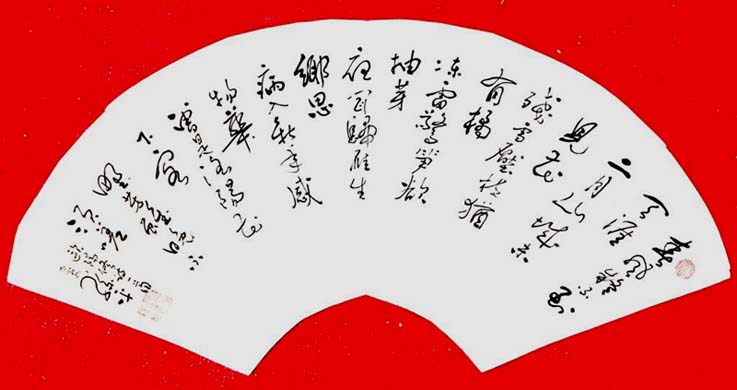 春風疑不到
天涯
二月山城未
見花
殘雪壓枝猶
有橘
凍雷驚筍欲
抽芽
夜聞歸雁生
鄉思
病入新年感
物華
曾是洛陽花
下客
野芳雖晚不
須嗟